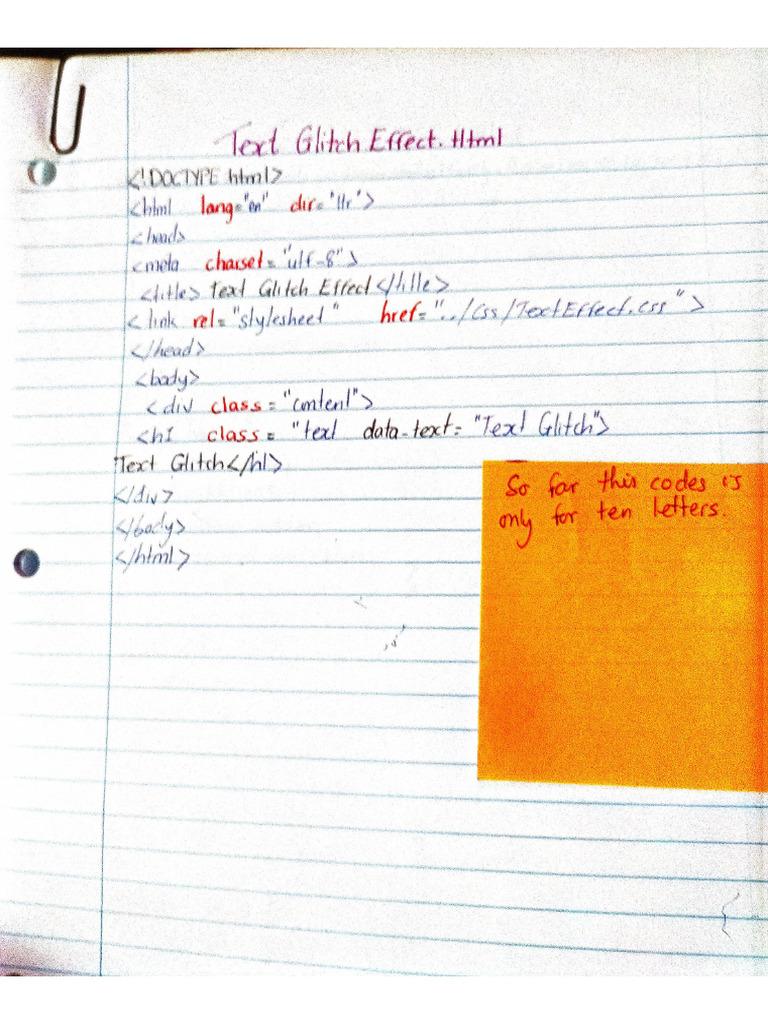 Text Glitch Effect.Html
<!DOCTYPE html>
<html lang="en" dir="ltr">
<head>
<meta charset="utf-8">
<title>Text Glitch Effect</title>
<link rel="stylesheet" href="../Css/TextEffect.css">
</head>
<body>
<div class="content">
<h1 class="text data-text="Text Glitch">
Text Glitch</h1>
</div>
</body>
</html>
So far this codes is
only for ten letters.